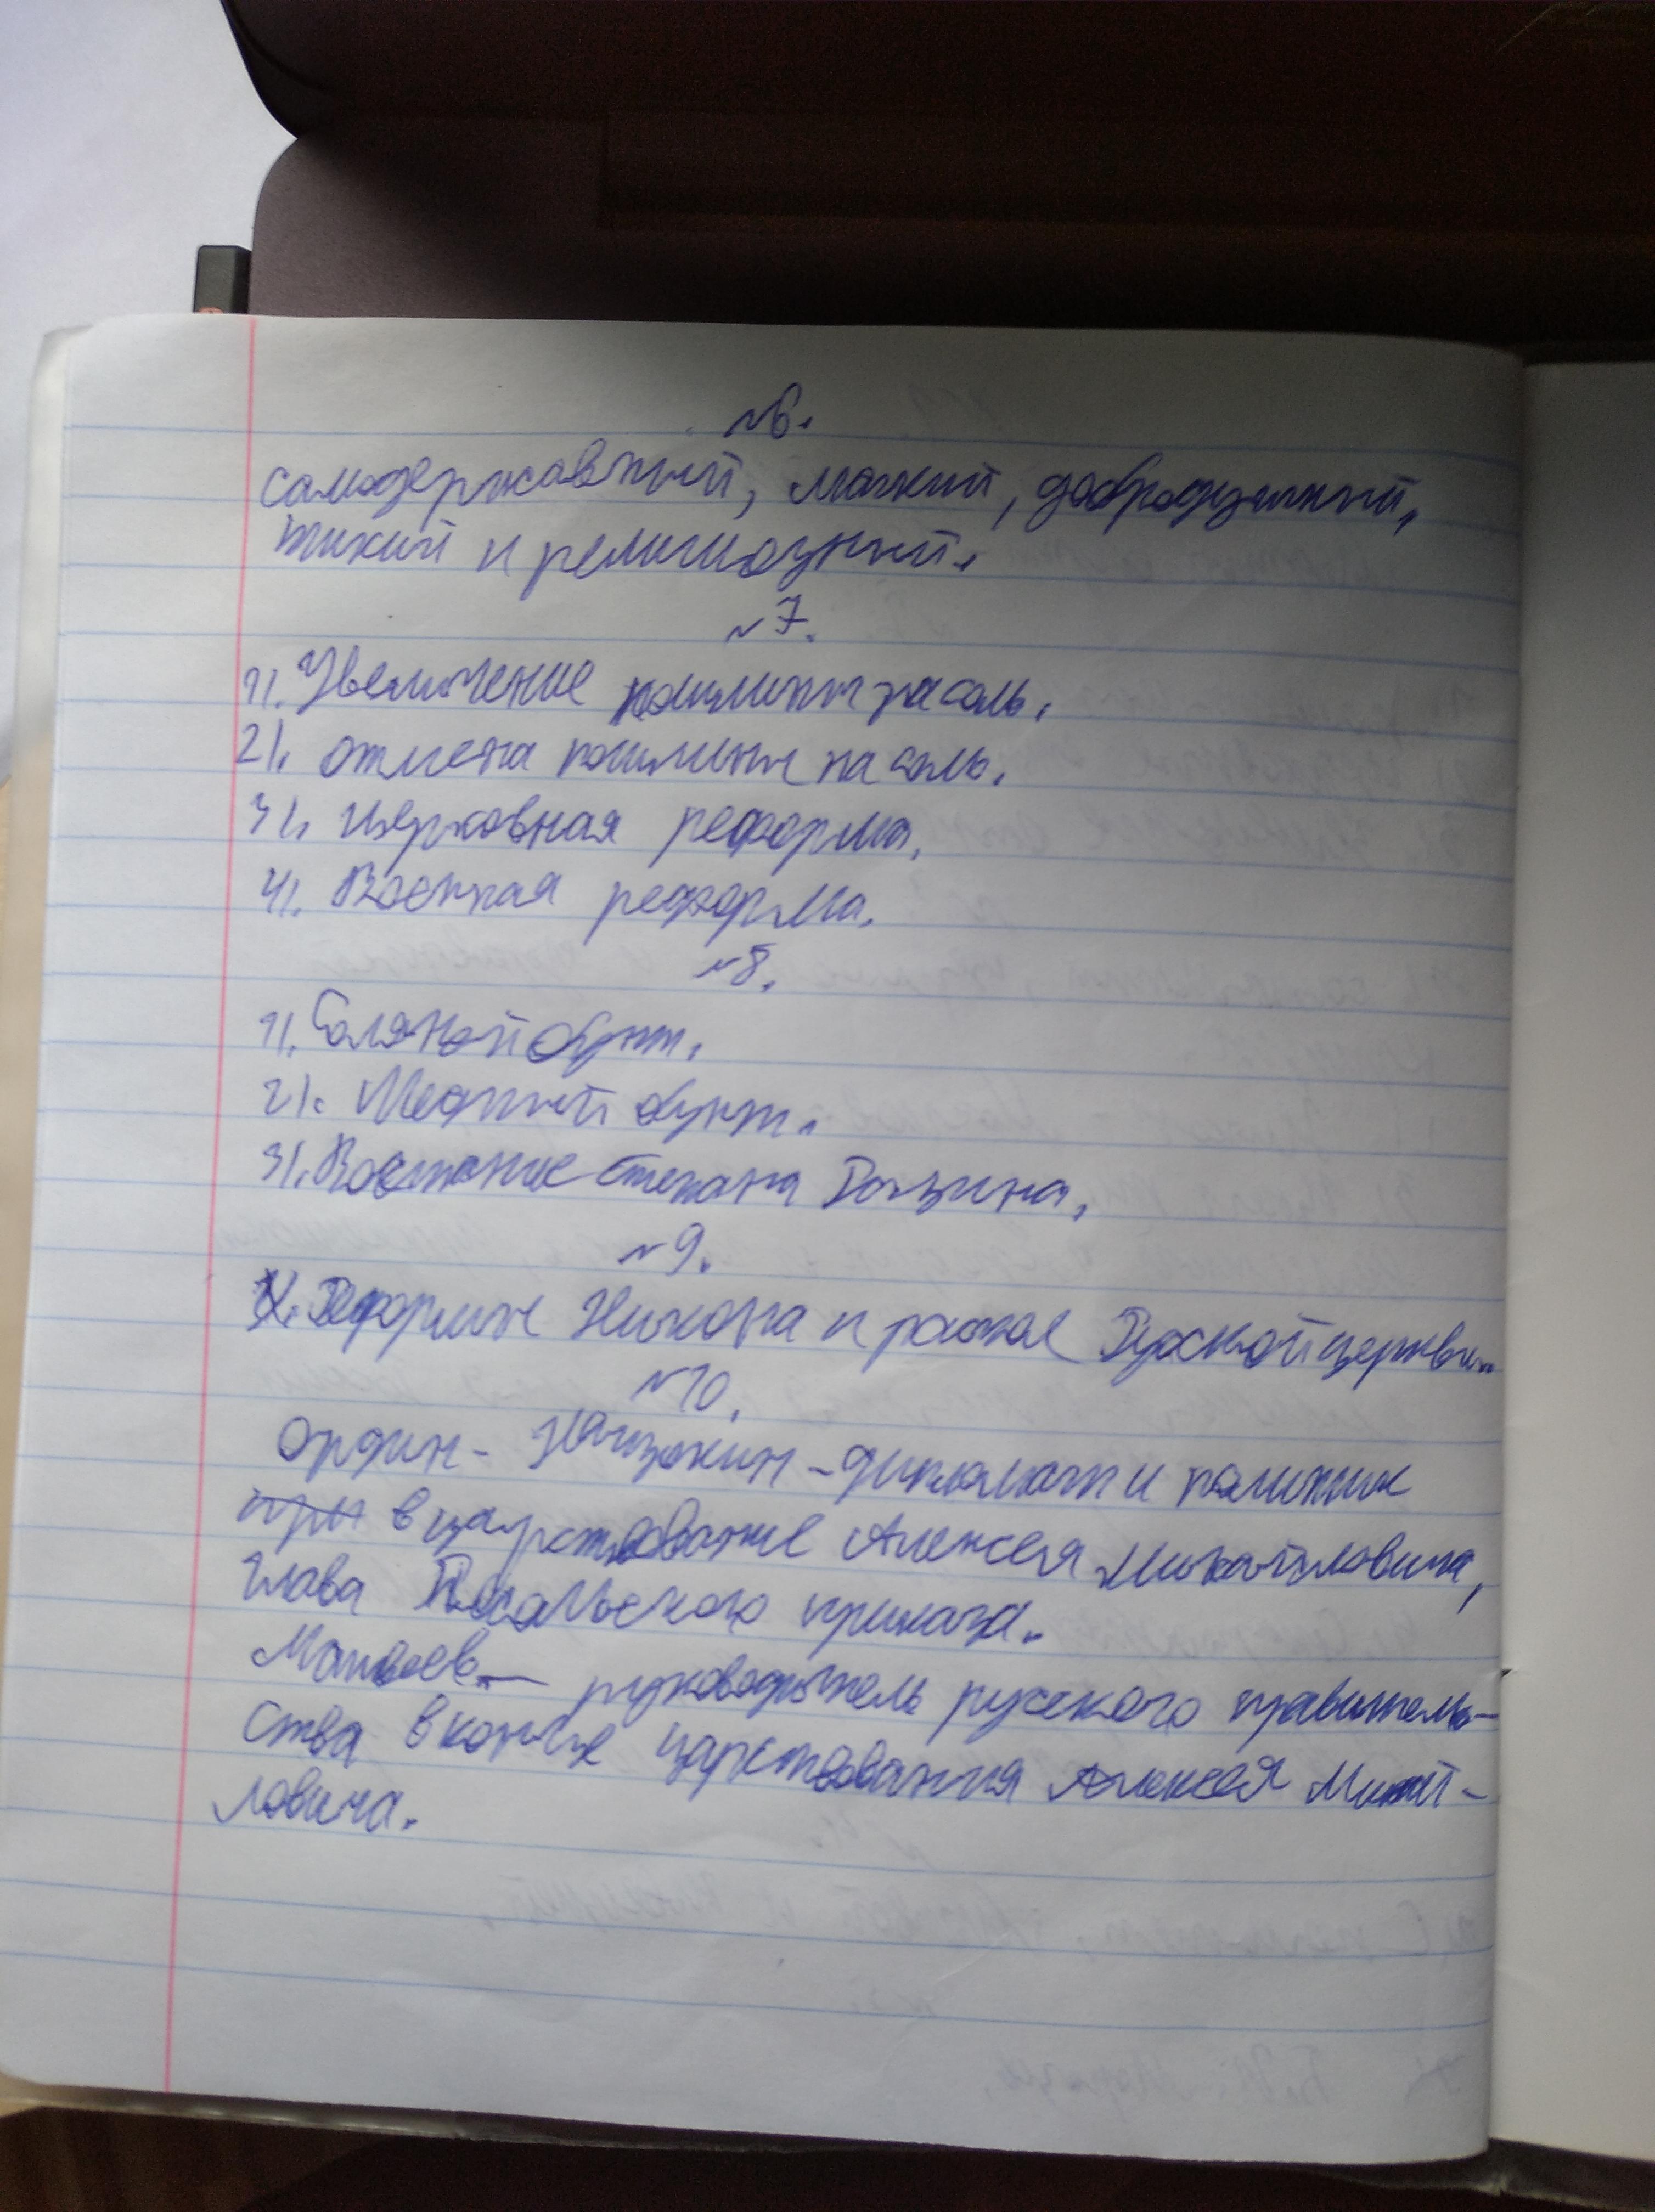 №6.
самодержавный, мягкий, добродушный,
тихий и религиозный.
№7.
1). Увеличение пошлины на соль.
2). отмена пошлины на соль.
3). Церковная реформа.
4). Военная реформа.
№8.
1). Соляной бунт.
2). Медный бунт.
3). Восстание Степана Разина.
№9.
Реформы Никона и раскол Русской церкви.
№10.
Ордин - Нащокин - дипломат и политик
при в царствование Алексея Михайловича,
глава Посольского приказа.
Матвеев — руководитель русского правитель-
ства в конце царствования Алексея Михай-
ловича.